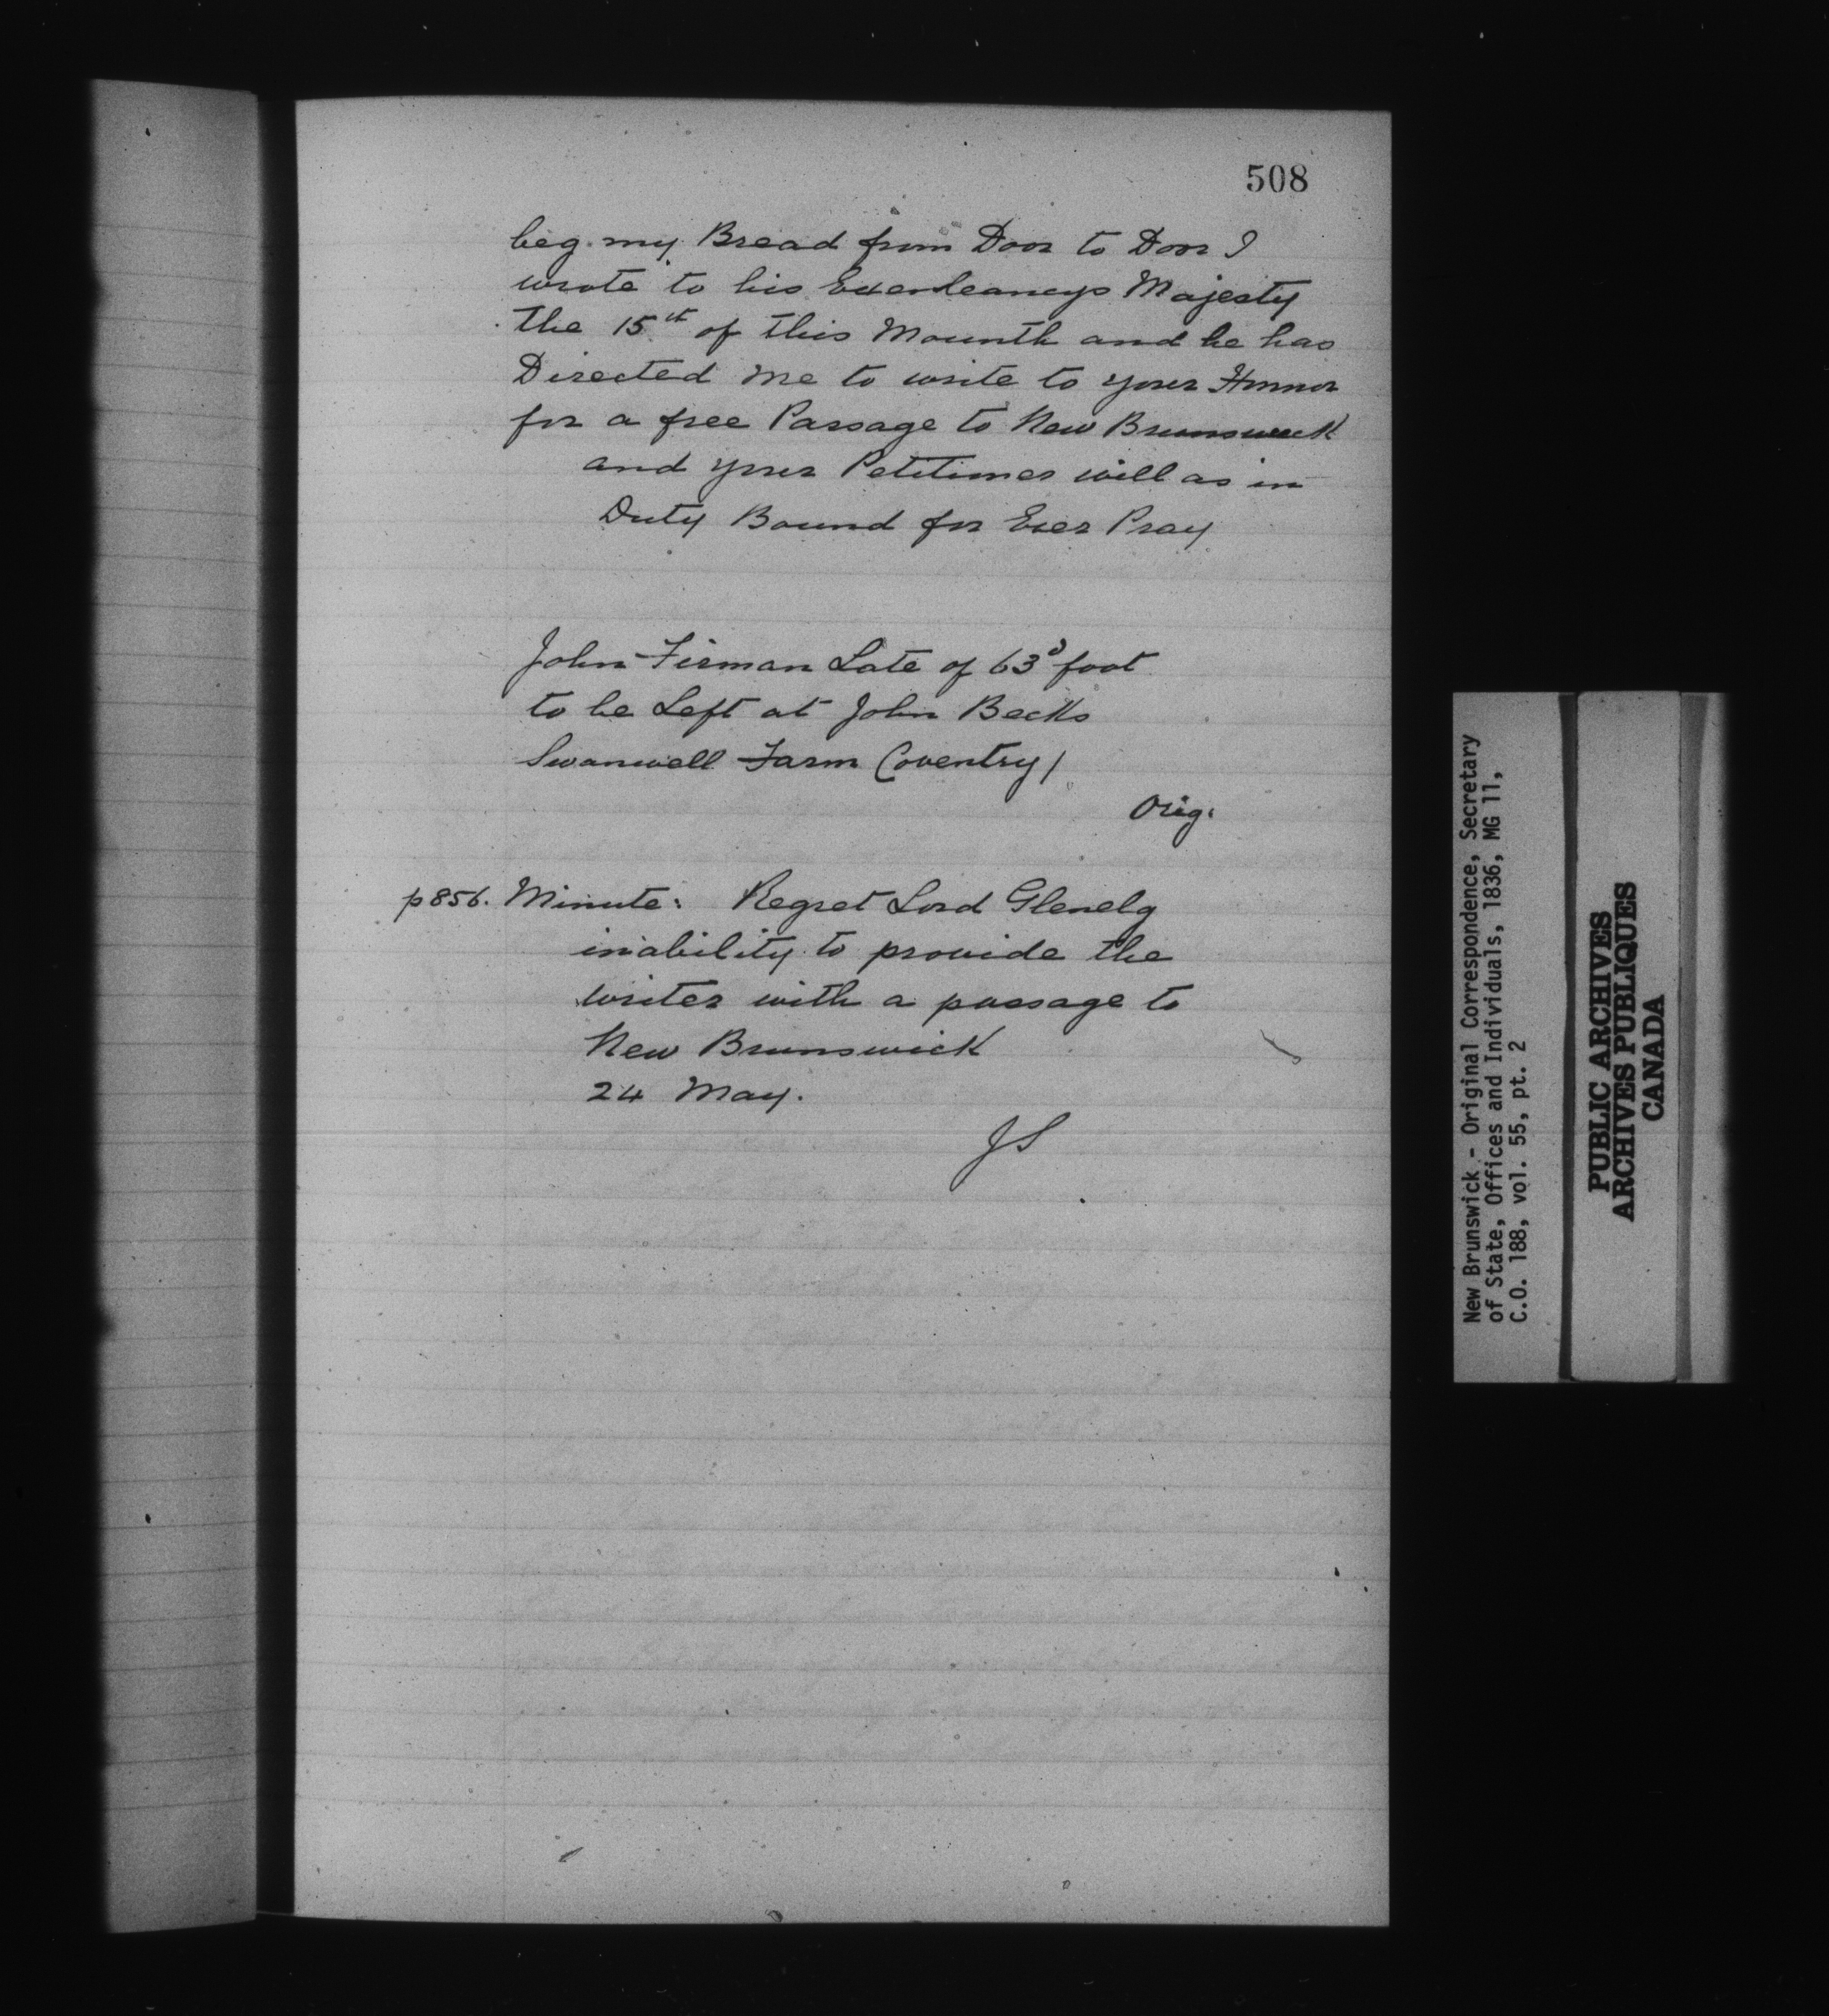 508
beg my Bread from Door to Door I
wrote to his Exerleancys Majesty
The 15th of this Mounth and he has
Directed me to write to your Honnor
for a free Passage to New Brunsweck
and your Petitioner will as in
Duty Bound for Ever Pray
John Firman Late of 63d foot
to be Left at John Becks
Swanwell Farm Coventry/
Orig.
p856. Minute: Regret Lord Glenelg
inability to provide the
writer with a passage to
New Brunswick
24 May.
JS
New Brunswick - Original Correspondence, Secretary
of State, Offices and Individuals, 1836, MG 11,
C.O. 188, vol. 55, pt. 2
PUBLIC ARCHIVES
ARCHIVES PUBLIQUES
CANADA